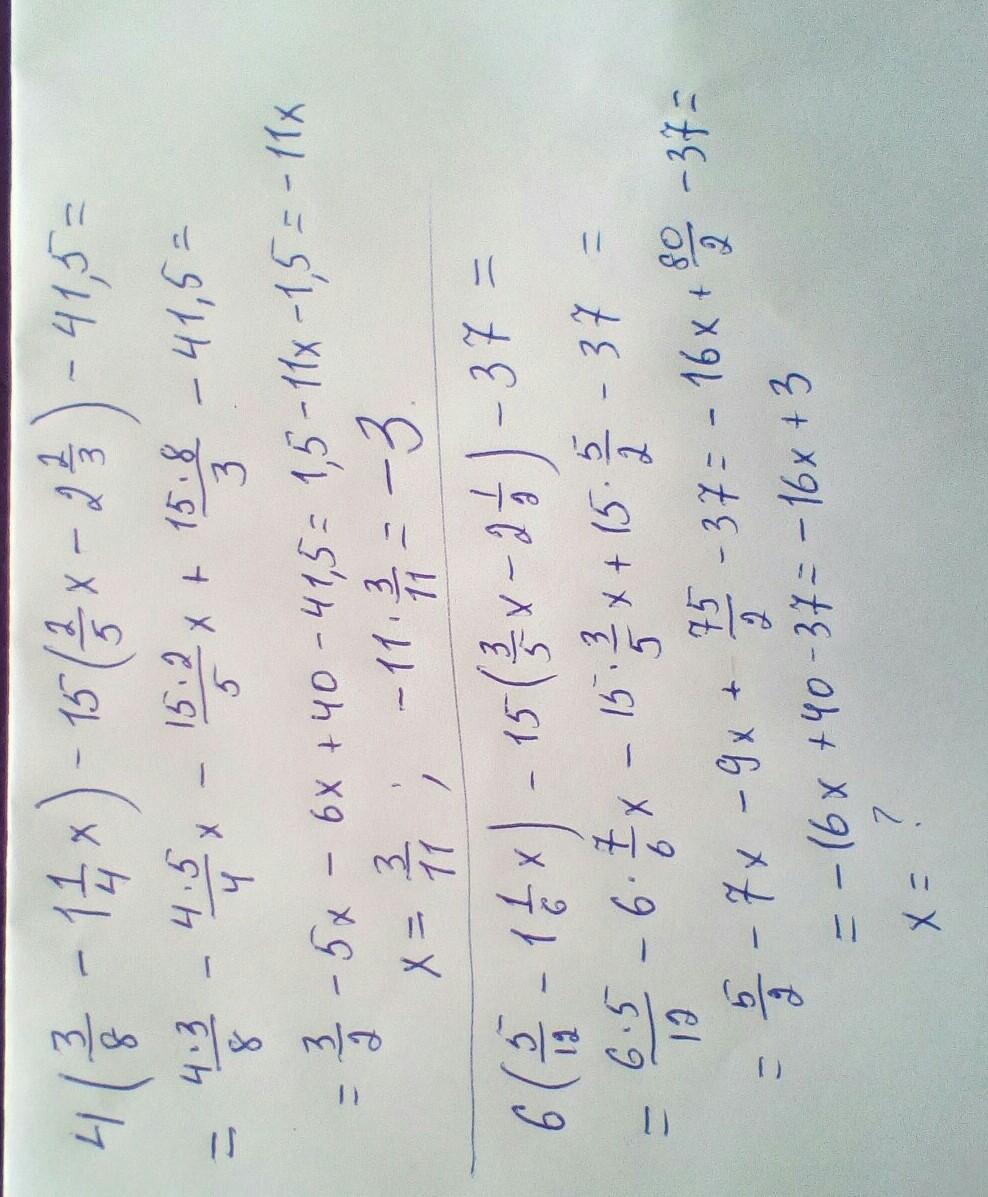 4(3/8 - 1 1/4 x) - 15(2/5 x - 2 2/3) - 41,5 =
= 4·3/8 - 4·5/4 x - 15·2/5 x + 15·8/3 - 41,5 =
= 3/2 - 5x - 6x + 40 - 41,5 = 1,5 - 11x - 1,5 = -11x
x = 3/11 ; -11· 3/11 = -3
6(5/12 - 1 1/6 x) - 15(3/5 x - 2 1/2) - 37 =
= 6·5/12 - 6· 7/6 x - 15· 3/5 x + 15· 5/2 - 37 =
= 5/2 - 7x - 9x + 75/2 - 37 = -16x + 80/2 - 37 =
= -16x + 40 - 37 = -16x + 3
x = ?